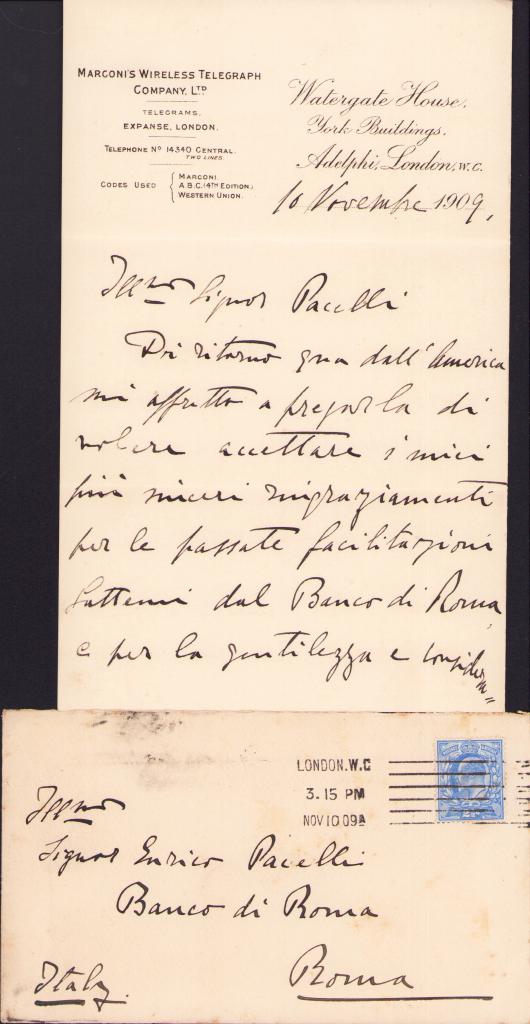 MARCONI'S WIRELESS TELEGRAPH
COMPANY, LTD
TELEGRAMS,
EXPANSE, LONDON.
TELEPHONE No 14340 CENTRAL.
TWO LINES.
CODES USED { MARCONI.
A.B.C. (4TH EDITION)
WESTERN UNION.
Watergate House,
York Buildings,
Adelphi, London, W.C.
10 Novembre 1909,
Illmo Signor Pacelli
Di ritorno qua dall'America
mi affretto a pregarla di
volere accettare i miei
più sinceri ringraziamenti
per le passate facilitazioni
fattemi dal Banco di Roma,
e per la gentilezza e considera=
LONDON.W.C
3.15 PM
NOV 10 09A
Illmo
Signor Enrico Pacelli
Banco di Roma
Roma
Italy.